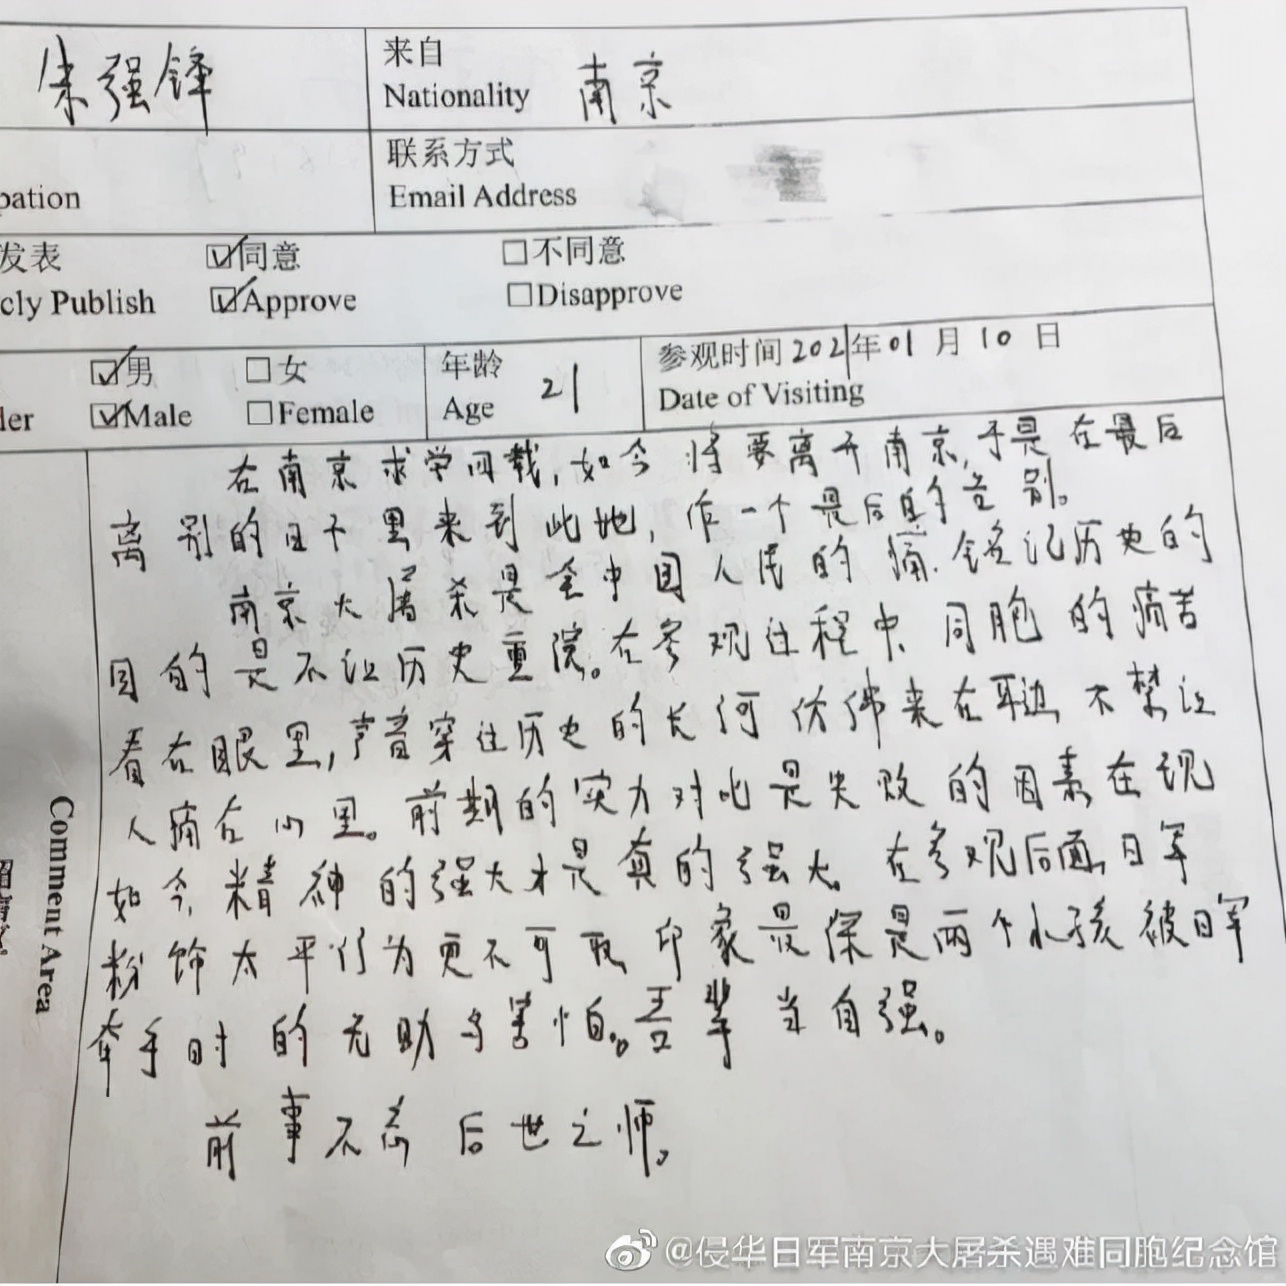 朱强锋
来自
Nationality 南京
联系方式
pation Email Address
发表 同意 不同意
cly Publish Approve Disapprove
男 女 年龄 21 参观时间 2021年01月10日
der Male Female Age Date of Visiting
在南京求学四载,如今将要离开南京,于是在最后
离别的日子里来到此地,作一个最后的告别。
南京大屠杀是全中国人民的痛,铭记历史的
目的是不让历史重演。在参观过程中,同胞的痛苦
看在眼里,声音穿过历史的长河仿佛来在耳边,不禁让
人痛在心里。前期的实力对比是失败的因素,在现
如今,精神的强大才是真的强大。在参观后面,日军
粉饰太平行为更不可取,印象最深是两个小孩被日军
牵手时的无助与害怕。吾辈当自强。
前事不忘 后世之师。
Comment Area
@侵华日军南京大屠杀遇难同胞纪念馆